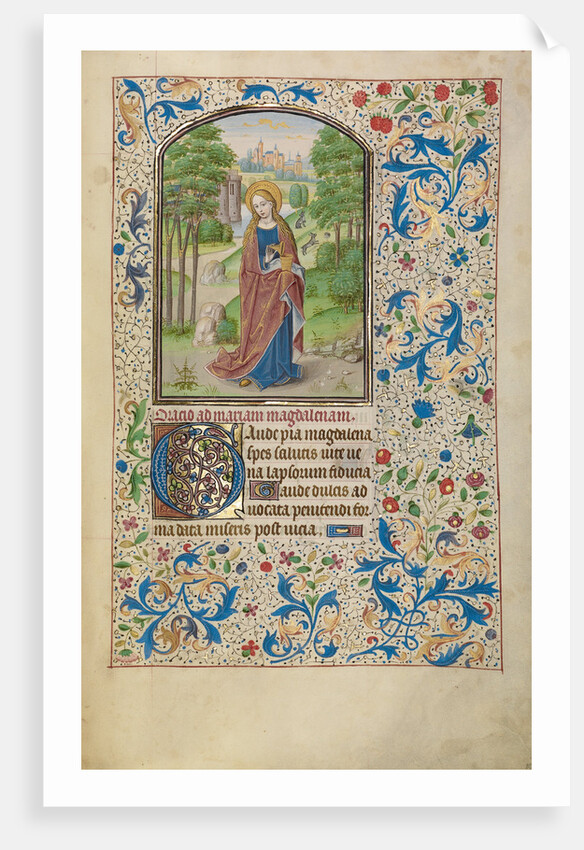 Oracio ad mariam magdalenam.
Gaude pia magdalena
spes salutis vite ve
na lapsorum fiducia
Gaude dulcis ad
vocata penitendi for
ma data miseris post vicia.